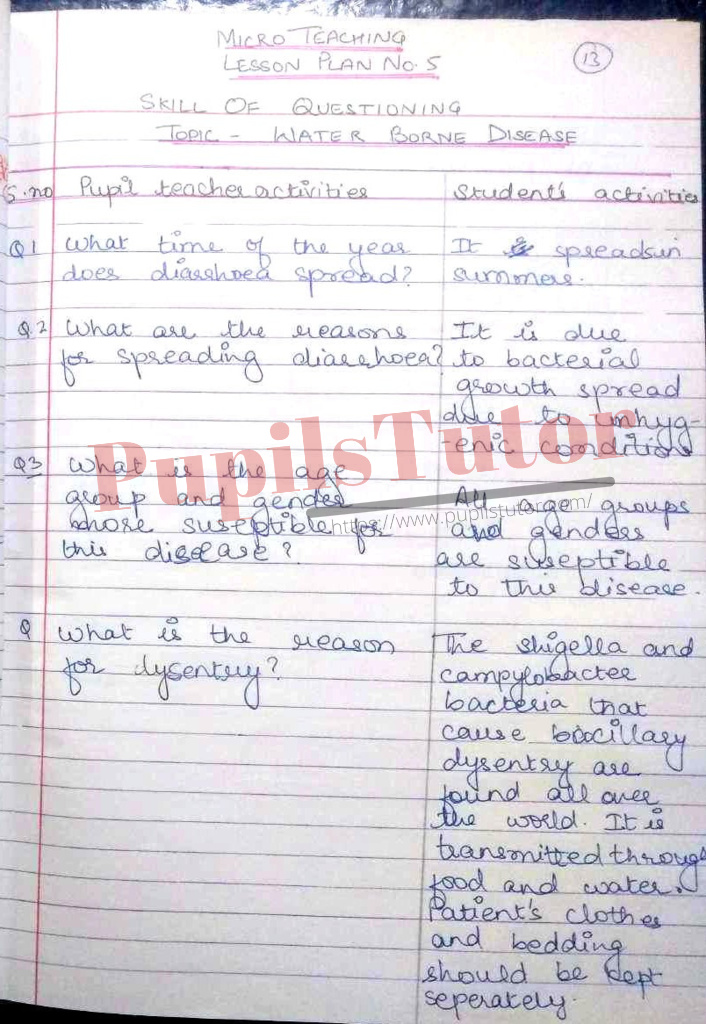 MICRO TEACHING
LESSON PLAN NO. 5
13
SKILL OF QUESTIONING
TOPIC - WATER BORNE DISEASE
S.no Pupil teacher activities
Student's activities
Q1 What time of the year
does diarrhoea spread?
It spreads in
summers.
Q.2 What are the reasons
for spreading diarrhoea?
It is due
to bacterial
growth spread
due to unhyg-
enic condition
PupilsTutor
https://www.pupilstutor.com/
Q3 What is the age
group and gender
whose suseptible for
this disease?
All age groups
and genders
are suseptible
to this disease.
Q What is the reason
for dysentry?
The shigella and
campylobacter
bacteria that
cause bacillary
dysentry are
found all over
the world. It is
transmitted through
food and water.
Patient's clothes
and bedding
should be kept
seperately.